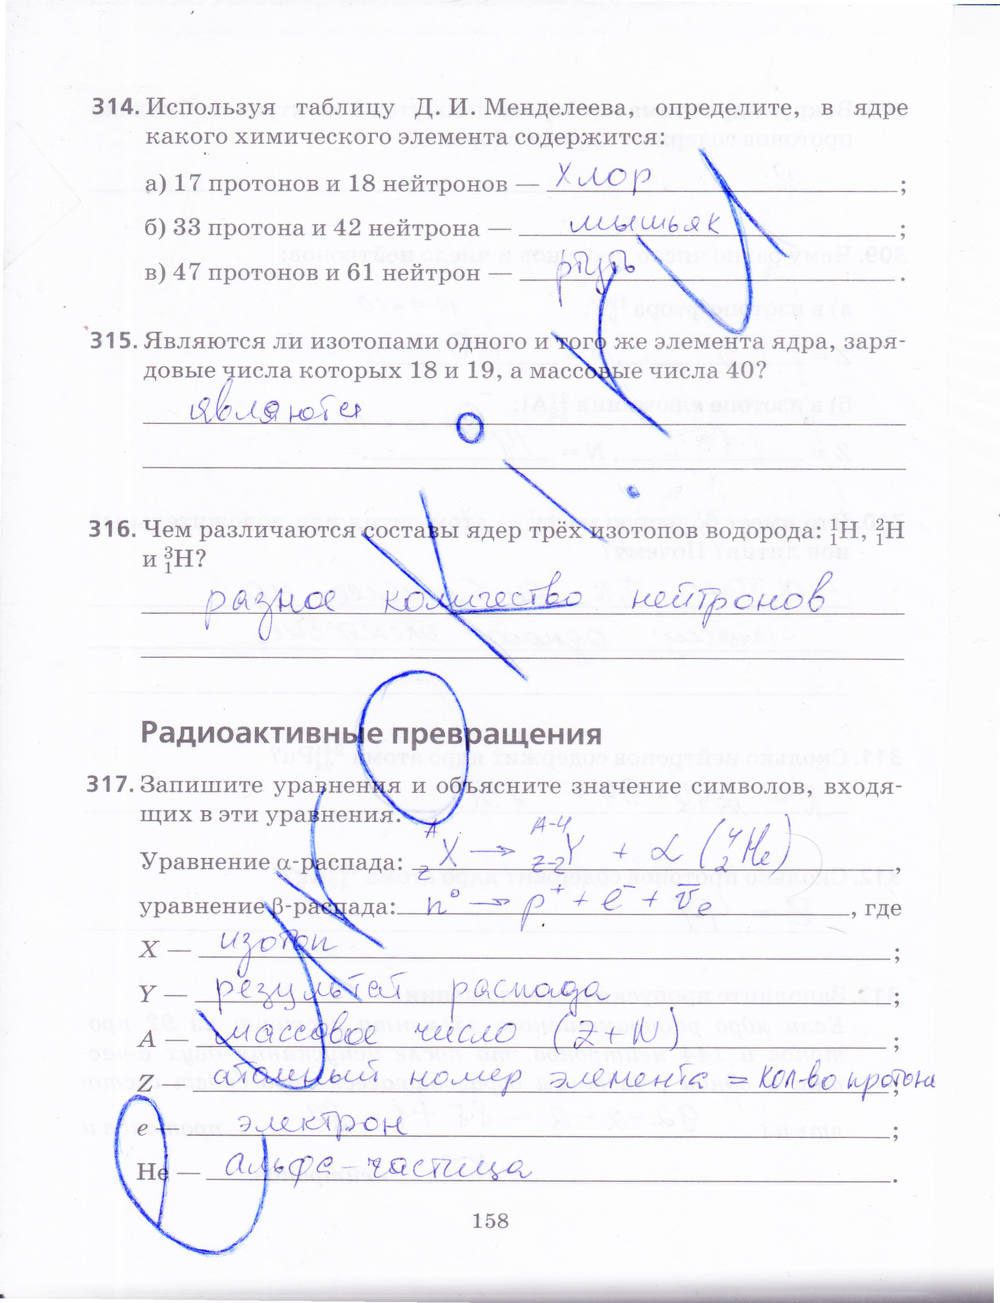 314. Используя таблицу Д. И. Менделеева, определите, в ядре
какого химического элемента содержится:
а) 17 протонов и 18 нейтронов — хлор ;
б) 33 протона и 42 нейтрона — мышьяк ;
в) 47 протонов и 61 нейтрон — ртуть .
315. Являются ли изотопами одного и того же элемента ядра, заря-
довые числа которых 18 и 19, а массовые числа 40?
являются
316. Чем различаются составы ядер трёх изотопов водорода: ¹₁H, ²₁H
и ³₁H?
разное количество нейтронов
Радиоактивные превращения
317. Запишите уравнения и объясните значение символов, входя-
щих в эти уравнения.
Уравнение α-распада: ᴬ_Z X → ᴬ⁻⁴_Z-2 Y + α (⁴₂He) ,
уравнение β-распада: n⁰ → p⁺ + e⁻ + ν̄e , где
X — изотоп ;
Y — результат распада ;
A — массовое число (Z+N) ;
Z — атомный номер элемента = кол-во протоне ;
e — электрон ;
He — альфа-частица .
158